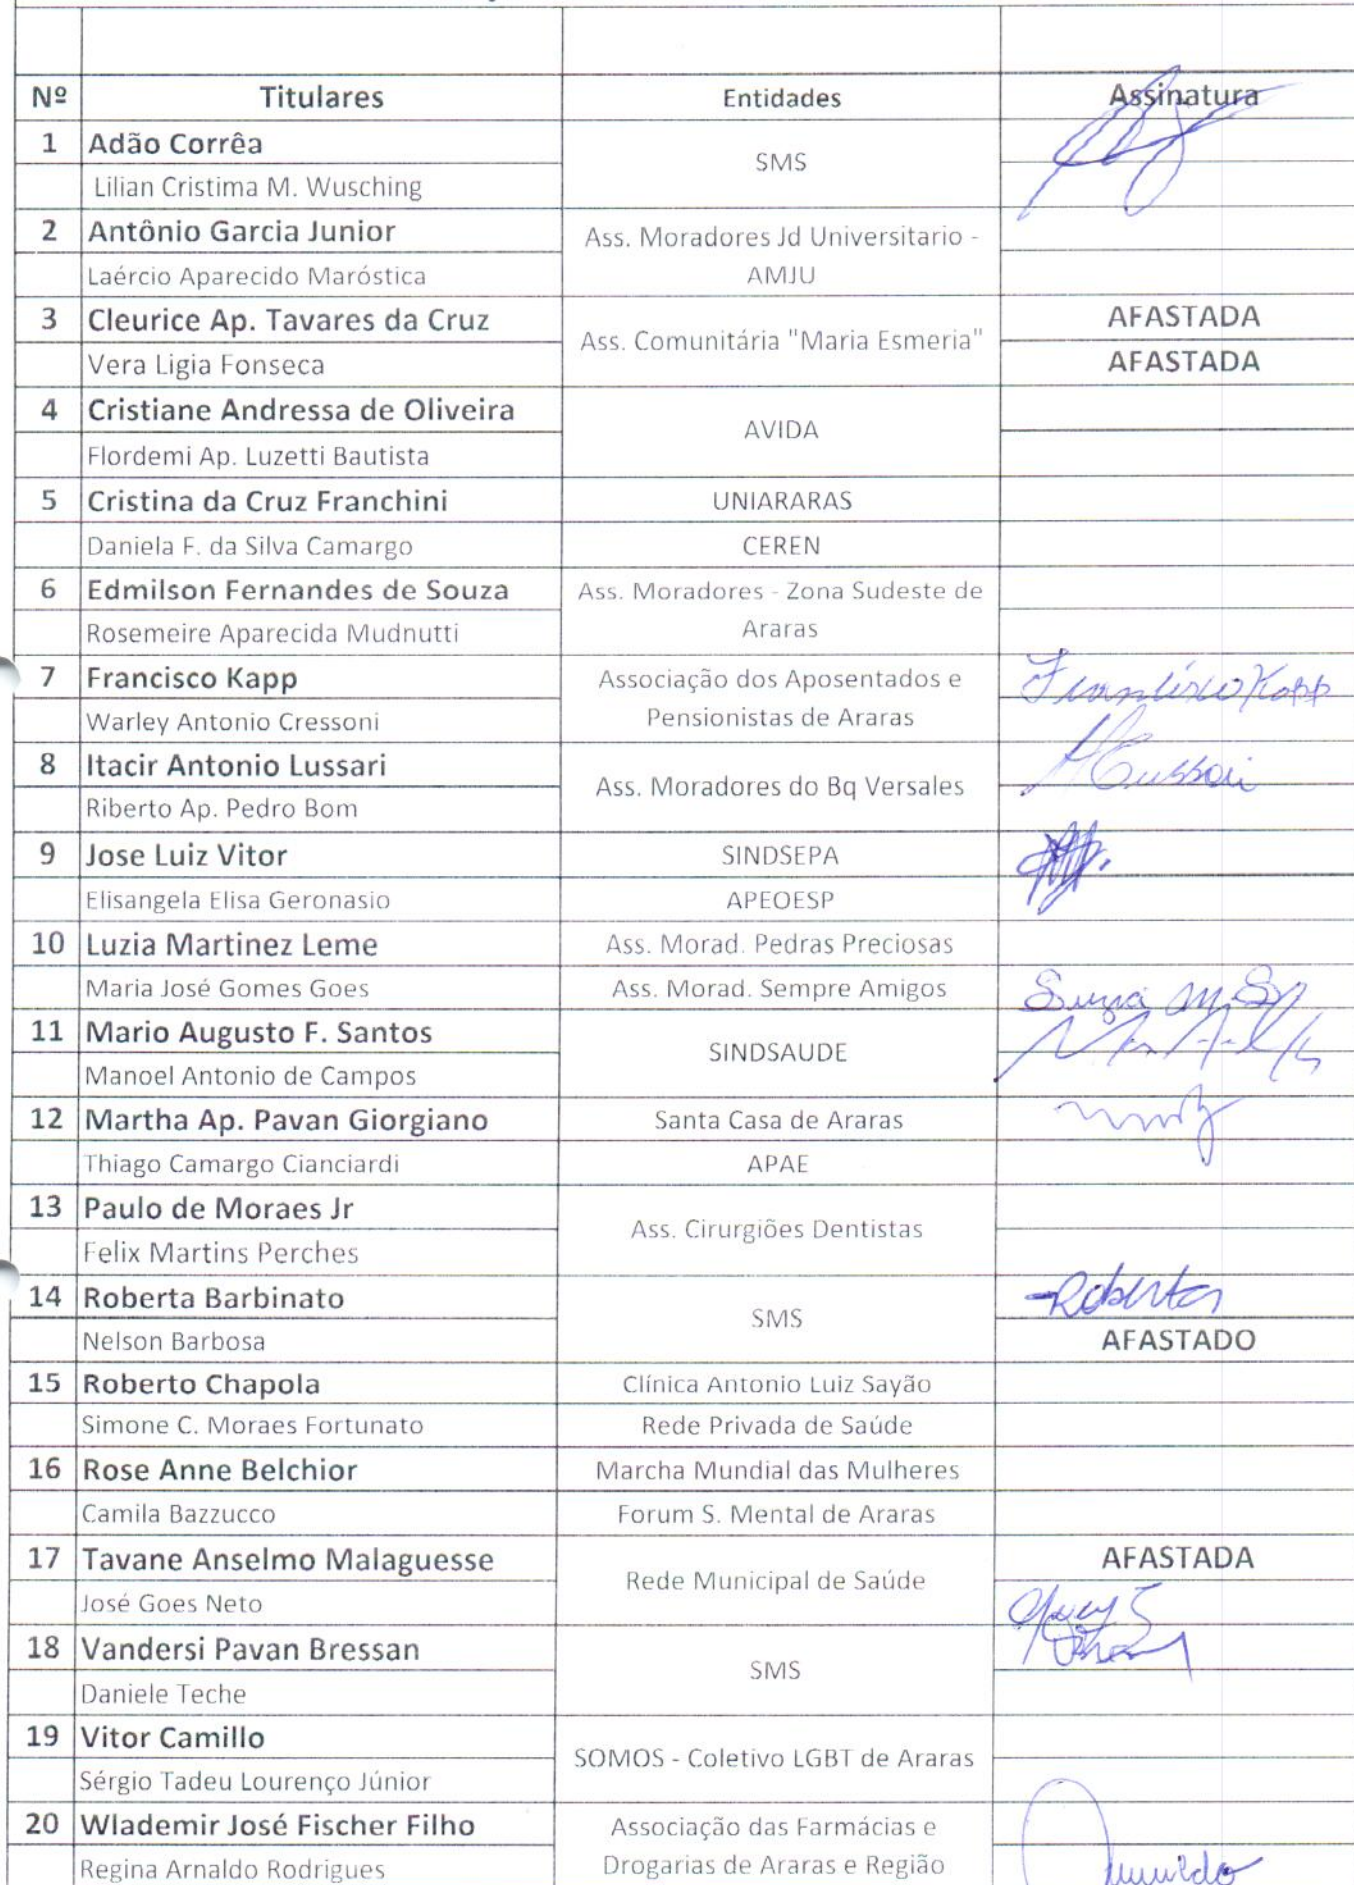 Nº Titulares Entidades Assinatura
1 Adão Corrêa
SMS
Lilian Cristima M. Wusching
2 Antônio Garcia Junior
Ass. Moradores Jd Universitario -
AMJU
Laércio Aparecido Maróstica
3 Cleurice Ap. Tavares da Cruz AFASTADA
Ass. Comunitária "Maria Esmeria"
Vera Ligia Fonseca AFASTADA
4 Cristiane Andressa de Oliveira
AVIDA
Flordemi Ap. Luzetti Bautista
5 Cristina da Cruz Franchini UNIARARAS
Daniela F. da Silva Camargo CEREN
6 Edmilson Fernandes de Souza Ass. Moradores - Zona Sudeste de
Rosemeire Aparecida Mudnutti Araras
7 Francisco Kapp Associação dos Aposentados e Francisco Kapp
Warley Antonio Cressoni Pensionistas de Araras
8 Itacir Antonio Lussari
Ass. Moradores do Bq Versales
Riberto Ap. Pedro Bom
9 Jose Luiz Vitor SINDSEPA
Elisangela Elisa Geronasio APEOESP
10 Luzia Martinez Leme Ass. Morad. Pedras Preciosas
Maria José Gomes Goes Ass. Morad. Sempre Amigos
11 Mario Augusto F. Santos
SINDSAUDE
Manoel Antonio de Campos
12 Martha Ap. Pavan Giorgiano Santa Casa de Araras
Thiago Camargo Cianciardi APAE
13 Paulo de Moraes Jr
Ass. Cirurgiões Dentistas
Felix Martins Perches
14 Roberta Barbinato Roberta
SMS
Nelson Barbosa AFASTADO
15 Roberto Chapola Clínica Antonio Luiz Sayão
Simone C. Moraes Fortunato Rede Privada de Saúde
16 Rose Anne Belchior Marcha Mundial das Mulheres
Camila Bazzucco Forum S. Mental de Araras
17 Tavane Anselmo Malaguesse AFASTADA
Rede Municipal de Saúde
José Goes Neto
18 Vandersi Pavan Bressan
SMS
Daniele Teche
19 Vitor Camillo
SOMOS - Coletivo LGBT de Araras
Sérgio Tadeu Lourenço Júnior
20 Wlademir José Fischer Filho Associação das Farmácias e
Regina Arnaldo Rodrigues Drogarias de Araras e Região